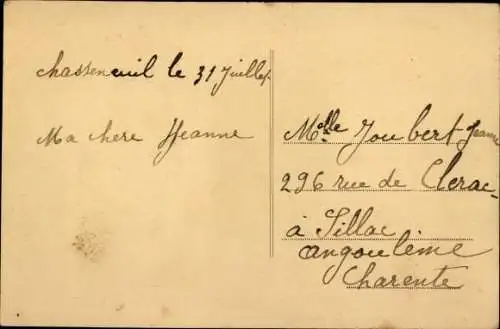 Chasseneuil le 31 Juillet
Ma chere Jeanne
Melle Joubert Jeanne
296 rue de Clerac
à Sillac
angoulème
Charente